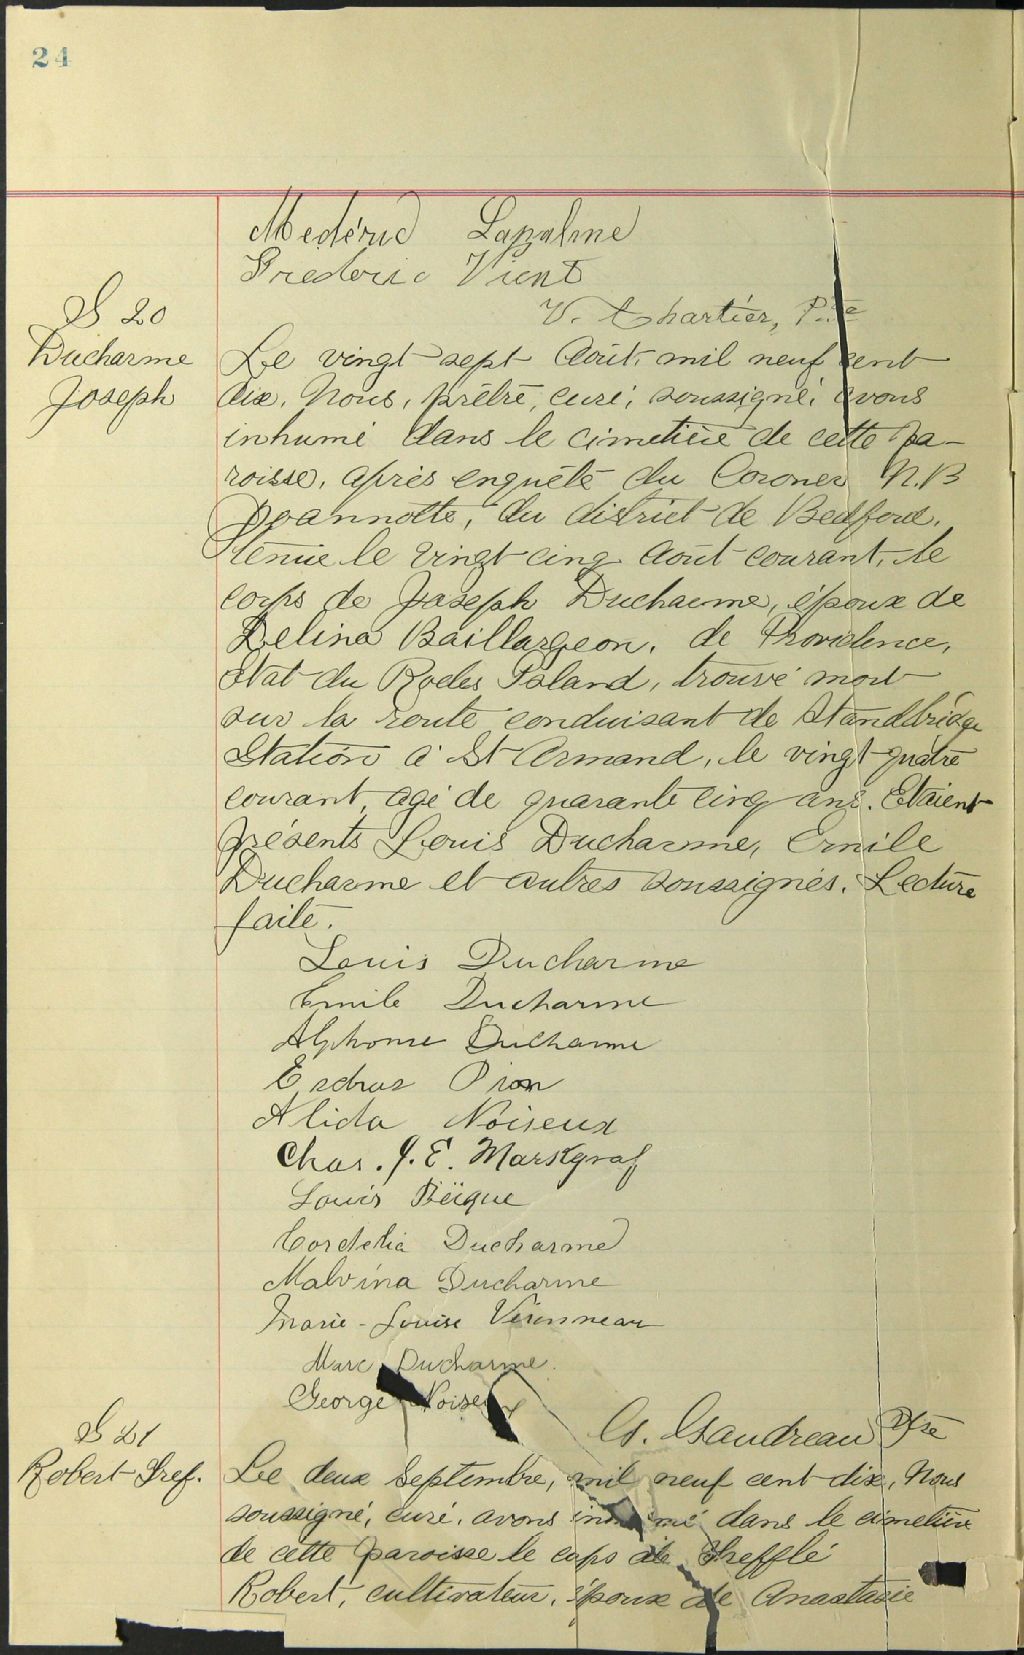 24
Medéric Lapalme
Frederic Vient
V. Chartier, Ptre
S 20
Ducharme
Joseph
Le vingt-sept Août, mil neuf cent
dix, Nous, prêtre, curé, soussigné, avons
inhumé dans le cimetière de cette pa-
roisse, après enquête du Coroner N.B
Joannotte, du district de Bedford,
tenue le vingt cinq Août courant, le
corps de Joseph Ducharme, époux de
Delina Baillargeon, de Providence,
Etat du Rodes Island, trouvé mort
sur la route conduisant de Standbridge
Station à St Armand, le vingt-quatre
courant, agé de quarante cinq ans. Etaient
présents Louis Ducharme, Emile
Ducharme et autres soussignés. Lecture
faite.
Louis Ducharme
Emile Ducharme
Alphonse Ducharme
Esdras Pion
Alida Noiseux
Chas. J. E. Markgraf
Louis Bëique
Cordelia Ducharme
Malvina Ducharme
Marie-Louise Véronneau
Marc Ducharme
George Noiseux
G. Gaudreau Ptre
S 21
Robert Tref.
Le deux Septembre, mil neuf cent dix, Nous
soussigné, curé, avons inhumé dans le cimetière
de cette paroisse le corps de Trefflé
Robert, cultivateur, époux de Anastasie